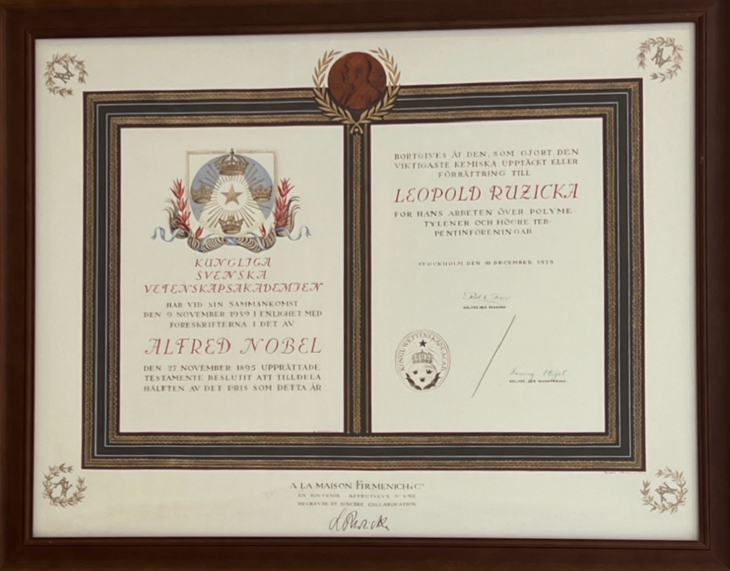 KUNGLIGA
SVENSKA
VETENSKAPSAKADEMIEN
HAR VID SIN SAMMANKOMST
DEN 9 NOVEMBER 1939 I ENLIGHET MED
FÖRESKRIFTERNA I DET AV
ALFRED NOBEL
DEN 27 NOVEMBER 1895 UPPRÄTTADE
TESTAMENTE BESLUTIT ATT TILLDELA
HÄLFTEN AV DET PRIS SOM DETTA ÅR
BORTGIVES ÅT DEN, SOM GJORT DEN
VIKTIGASTE KEMISKA UPPTÄCKT ELLER
FÖRBÄTTRING TILL
LEOPOLD RUZICKA
FÖR HANS ARBETEN ÖVER POLYME-
TYLENER OCH HÖGRE TER-
PENTINFÖRENINGAR
STOCKHOLM DEN 10 DECEMBER
A LA MAISON FIRMENICH & Cie
EN SOUVENIR D'UNE
ET SINCÈRE COLLABORATION
L Ruzicka